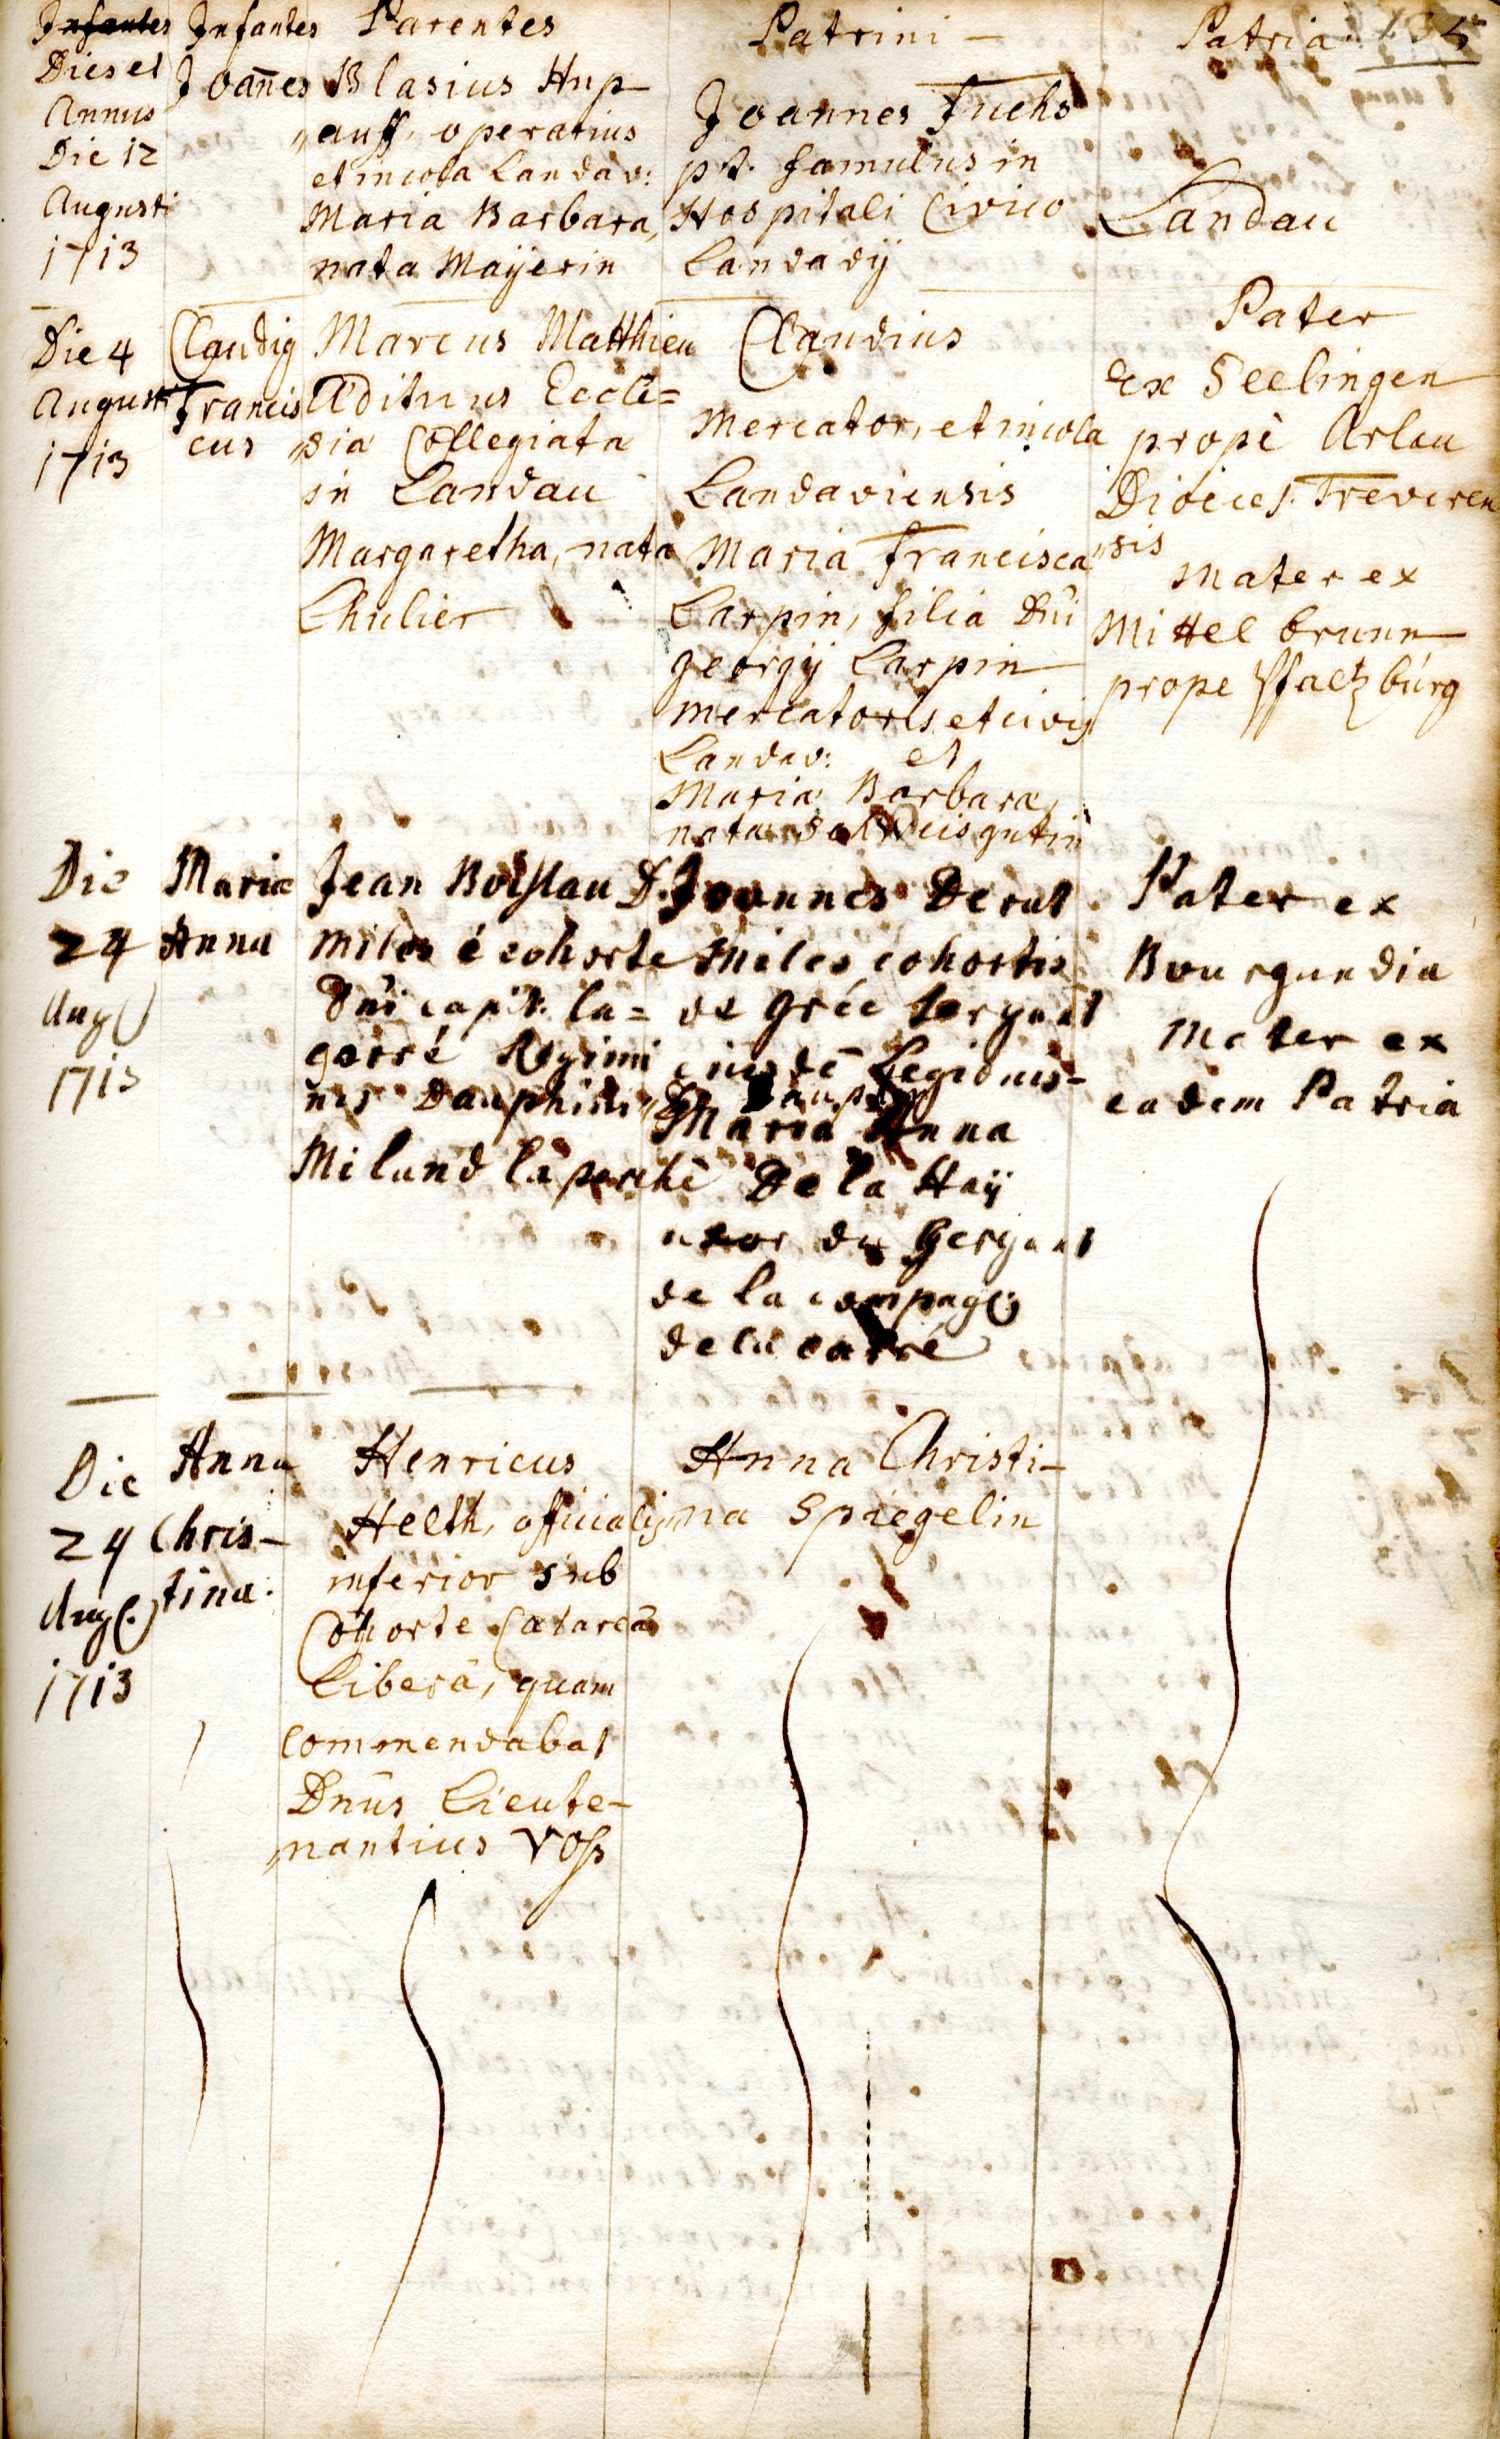 Infantes Infantes Parentes Patrini Patria 135
Dies et
Annus
Die 12
Augusti
1713
Joannes
Blasius Hup
auff. operarius
et incola Landav:
Maria Barbara,
nata Mayerin
Joannes Fuchs
pt. famulus in
Hospitali Civico
Landavij
Landau
Die 4
Augusti
1713
Claudig
Francis
cus
Marcus Matthieu
Ædituus Eccle=
siæ Collegiata
in Landau
Margaretha, nata
Lhulier
Claudius
Mercator, et incola
Landaviensis
Maria Francisca
Larpin, filia Dni
georgij Larpin
mercatoris et civis
Landav: et
Maria Barbara,
nata
Pater
ex Seelingen
propè Arlon
Dioeces. Treveren
sis
Mater ex
Mittelbrunn
prope Pfaltzbúrg
Die
24
Aug
1713
Maria
Anna
Jean Boislau D.
miles è cohorte
Dni capit. la=
garré Regimi
nis Dauphin
Miland la perche
Joannes Derat
Miles cohortis
de Grée sergant
eiusdē Legionis
Dauph
Maria Anna
De la Haÿ
uxor du sergant
de la compag
de la carré
Pater ex
Bourgundia
Mater ex
eadem Patria
Die
24
Aug.
1713
Anna
Chris-
tina.
Henricus
Helth, officialis
inferior sub
Cohorte
Liberâ, quam
commendabat
Dnus Lieute-
nantius Voß
Anna Christi-
na Spiegelin